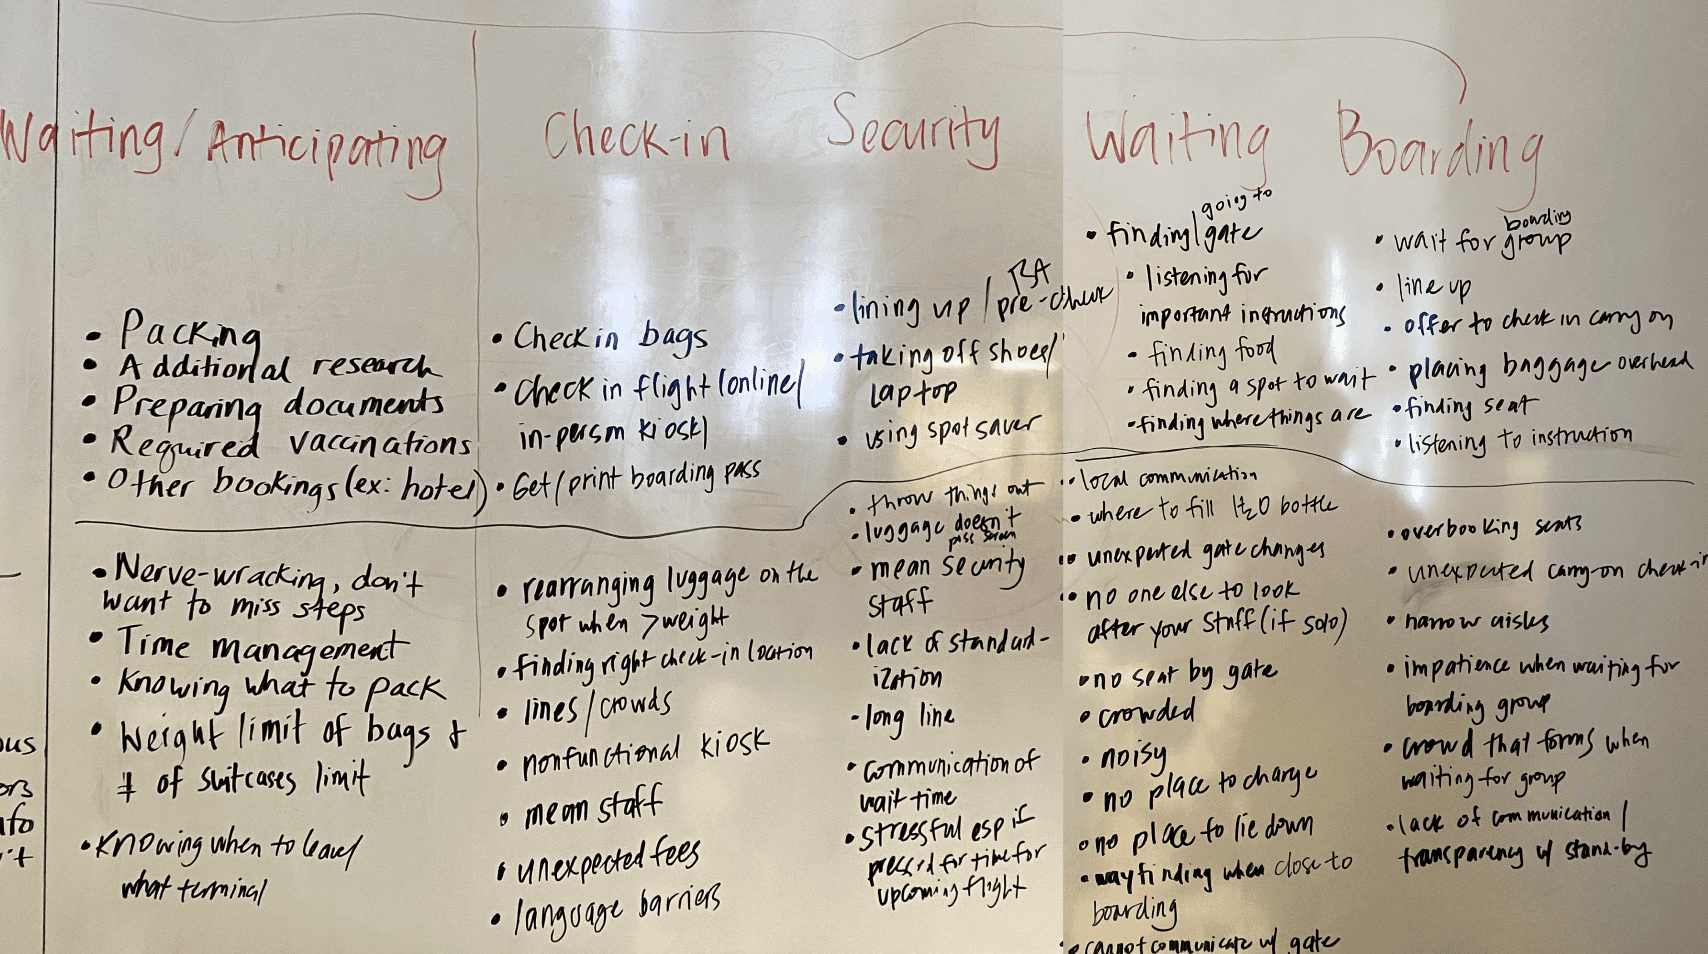 Waiting / Anticipating
• Packing
• Additional research
• Preparing documents
• Required vaccinations
• Other bookings (ex: hotel)
• Nerve-wracking, don't
want to miss steps
• Time management
• Knowing what to pack
• Weight limit of bags &
# of suitcases limit
• Knowing when to leave/
what terminal
Check-in
• Check in bags
• Check in flight (online/
in-person kiosk)
• Get/print boarding pass
• rearranging luggage on the
spot when > weight
• finding right check-in location
• lines/crowds
• nonfunctional kiosk
• mean staff
• unexpected fees
• language barriers
Security
• lining up / TSA pre-check
• taking off shoes/
laptop
• using spot saver
• throw things out
• luggage doesn't
pass screen
• mean security
staff
• lack of standard-
ization
- long line
• communication of
wait time
• stressful esp if
pressed for time for
upcoming flight
Waiting
going to
• finding/gate
• listening for
important instructions
• finding food
• finding a spot to wait
• finding where things are
• local communication
• where to fill H2O bottle
• unexpected gate changes
• no one else to look
after your stuff (if solo)
• no seat by gate
• crowded
• noisy
• no place to charge
• no place to lie down
• wayfinding when close to
boarding
• cannot communicate w/ gate
Boarding
boarding
• wait for group
• line up
• offer to check in carry on
• placing baggage overhead
• finding seat
• listening to instruction
• overbooking seats
• unexpected carry-on check-in
• narrow aisles
• impatience when waiting for
boarding group
• crowd that forms when
waiting for group
• lack of communication /
transparency w/ stand-by